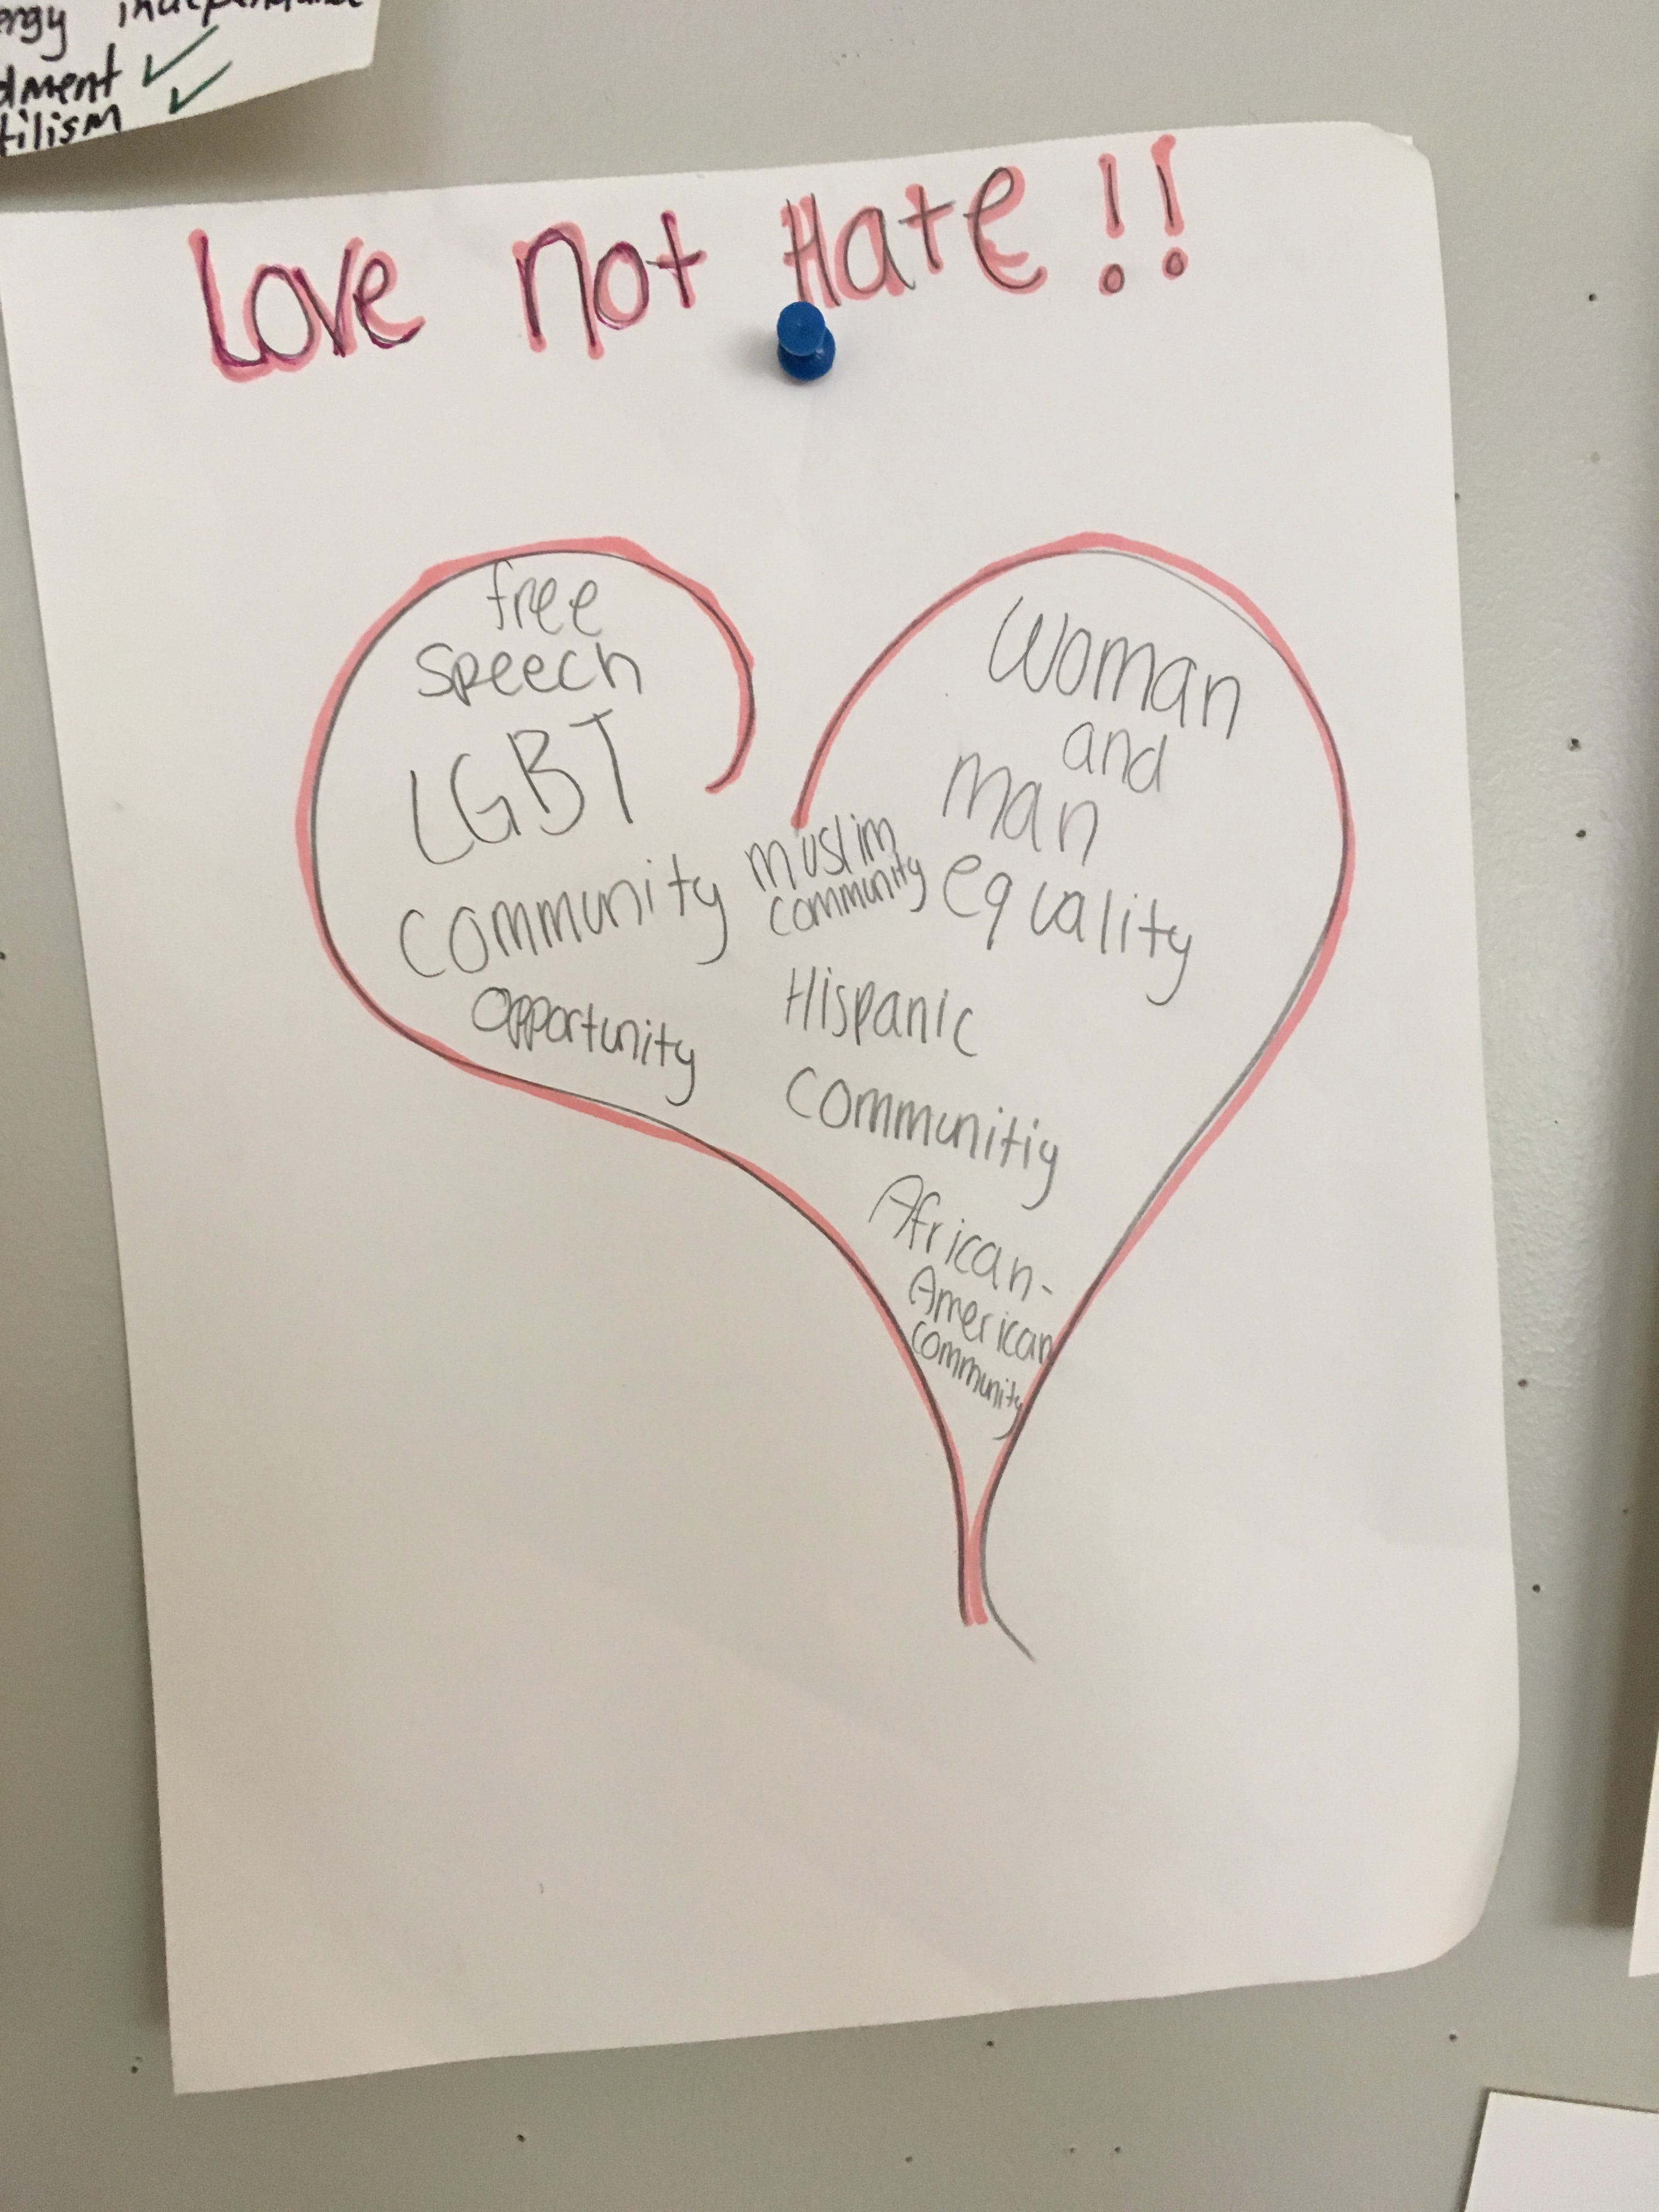 dment ✓
tilism ✓
Love not Hate!!
free
speech
LGBT
community
opportunity
muslim
community
Woman
and
man
equality
Hispanic
communitiy
African-
American
community